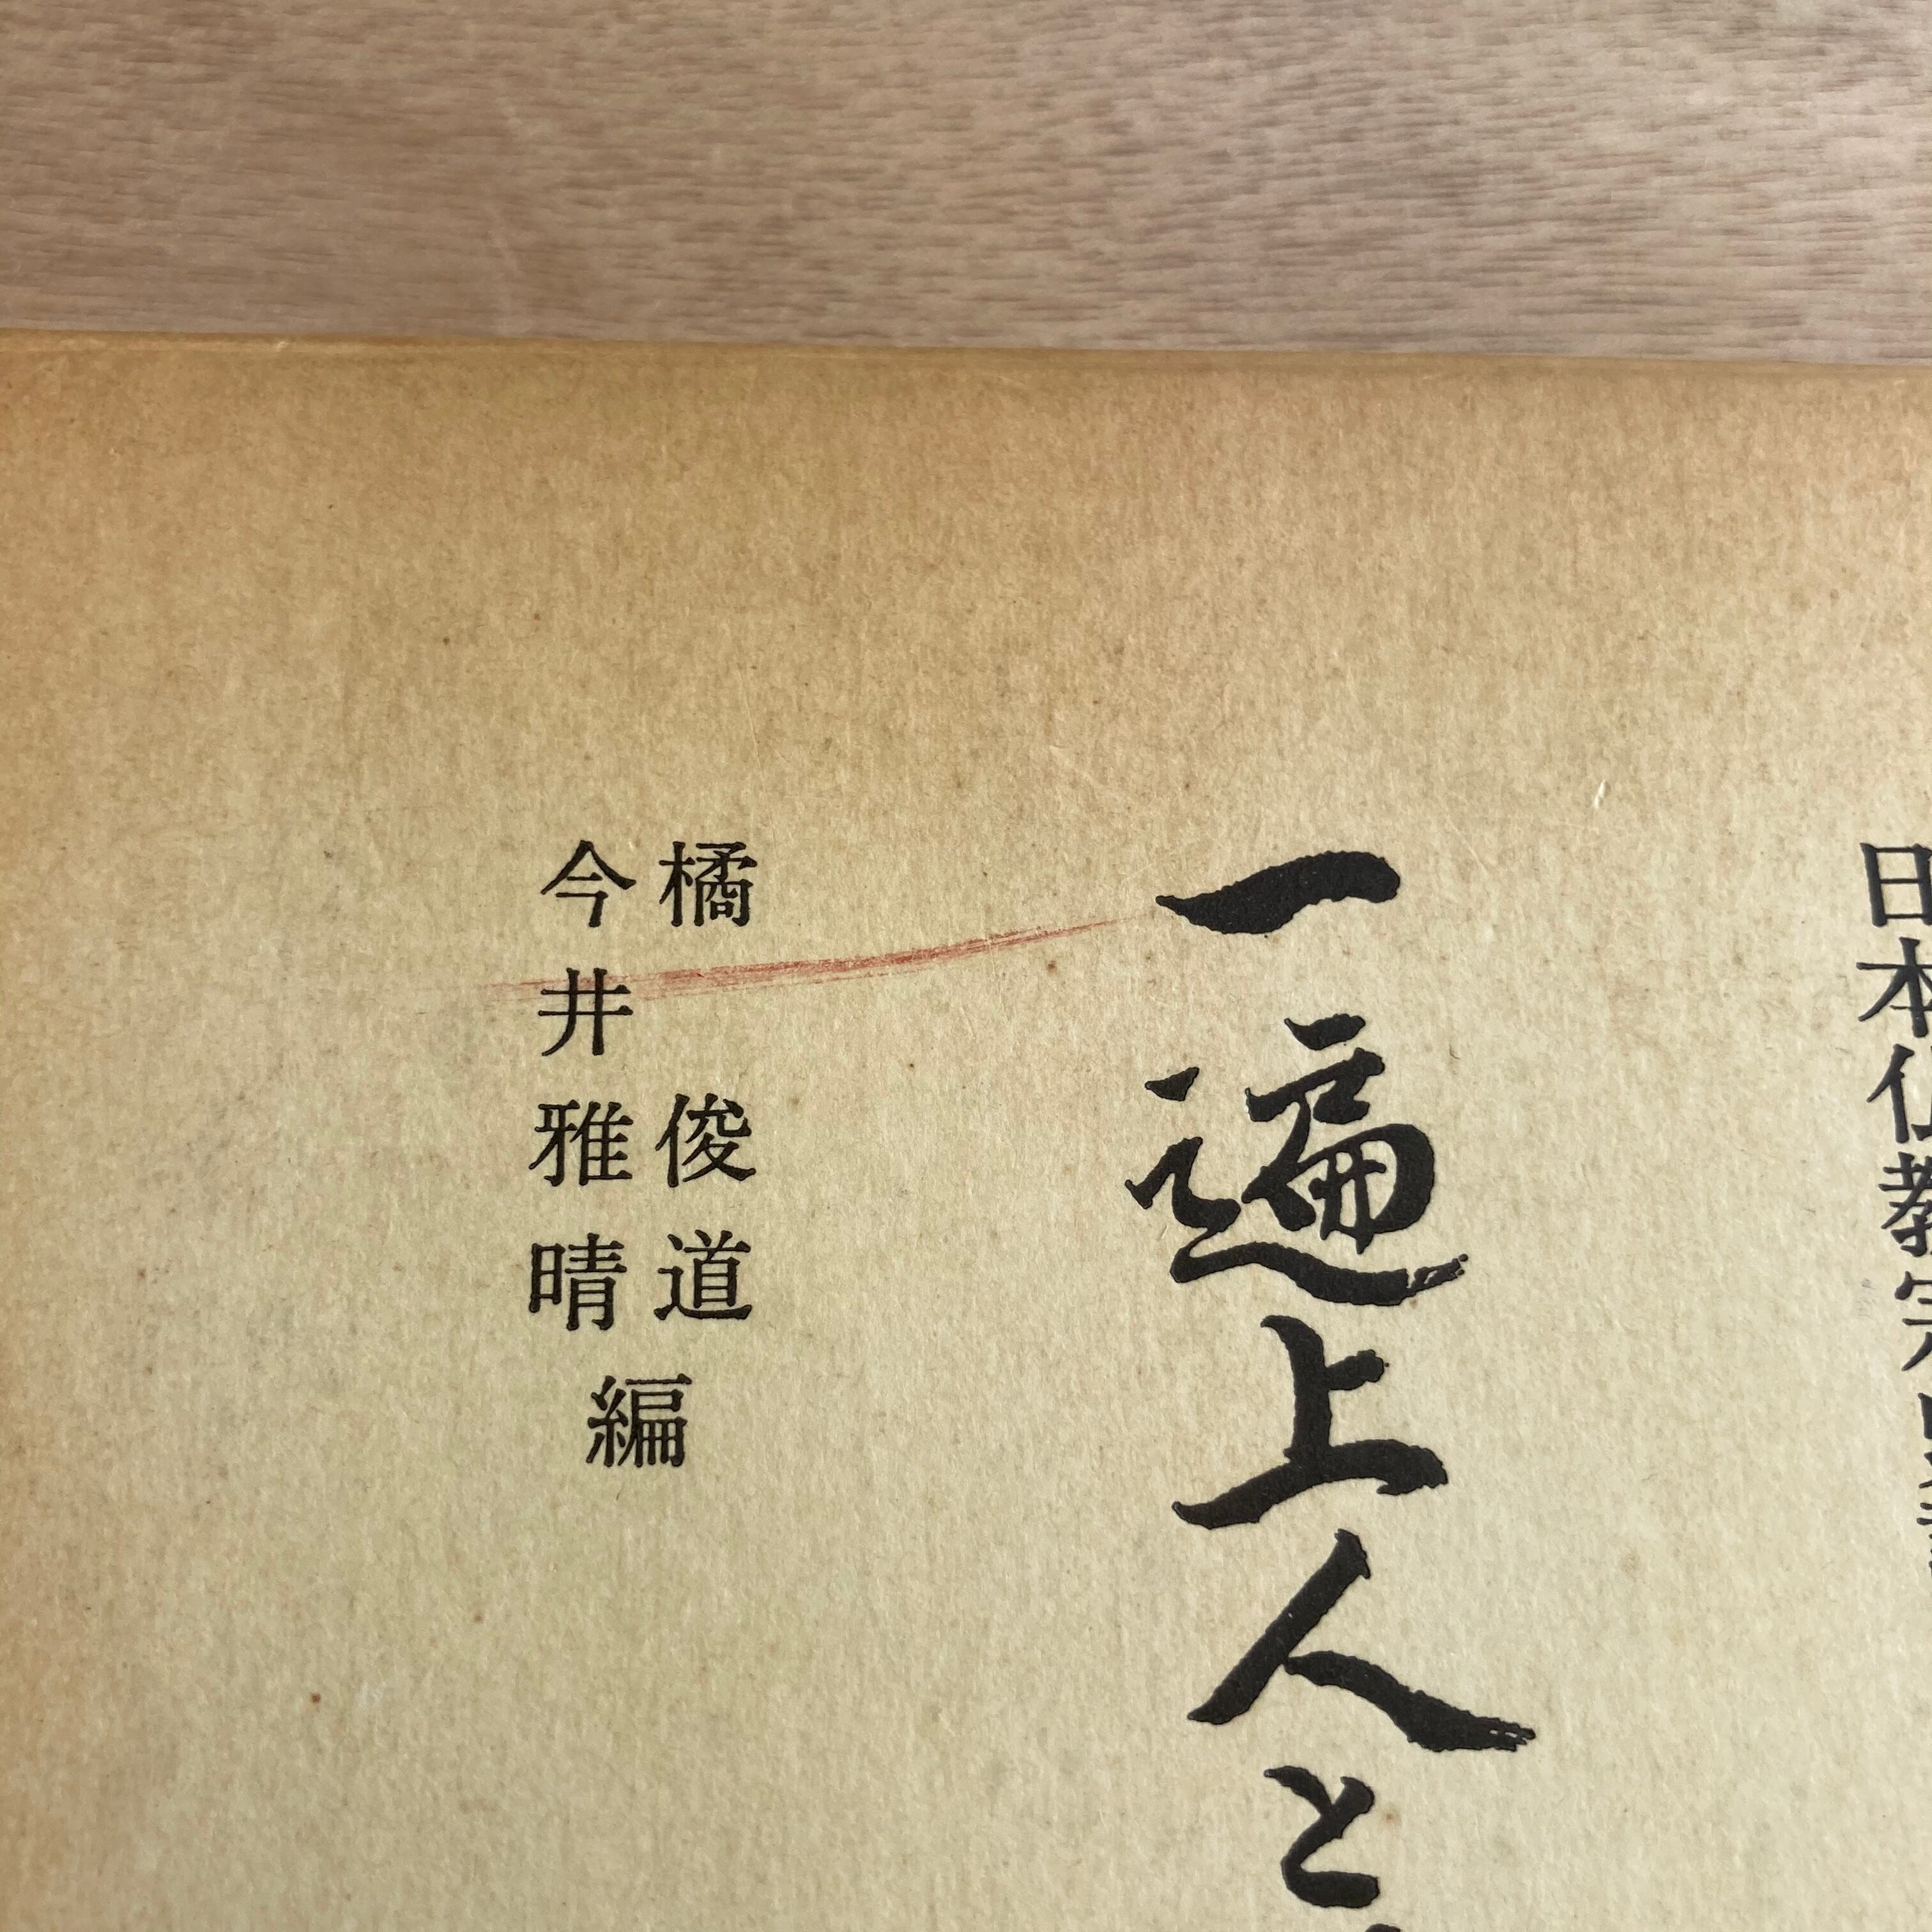 日本仏教宗史
一遍上人と
橘俊道
今井雅晴
編